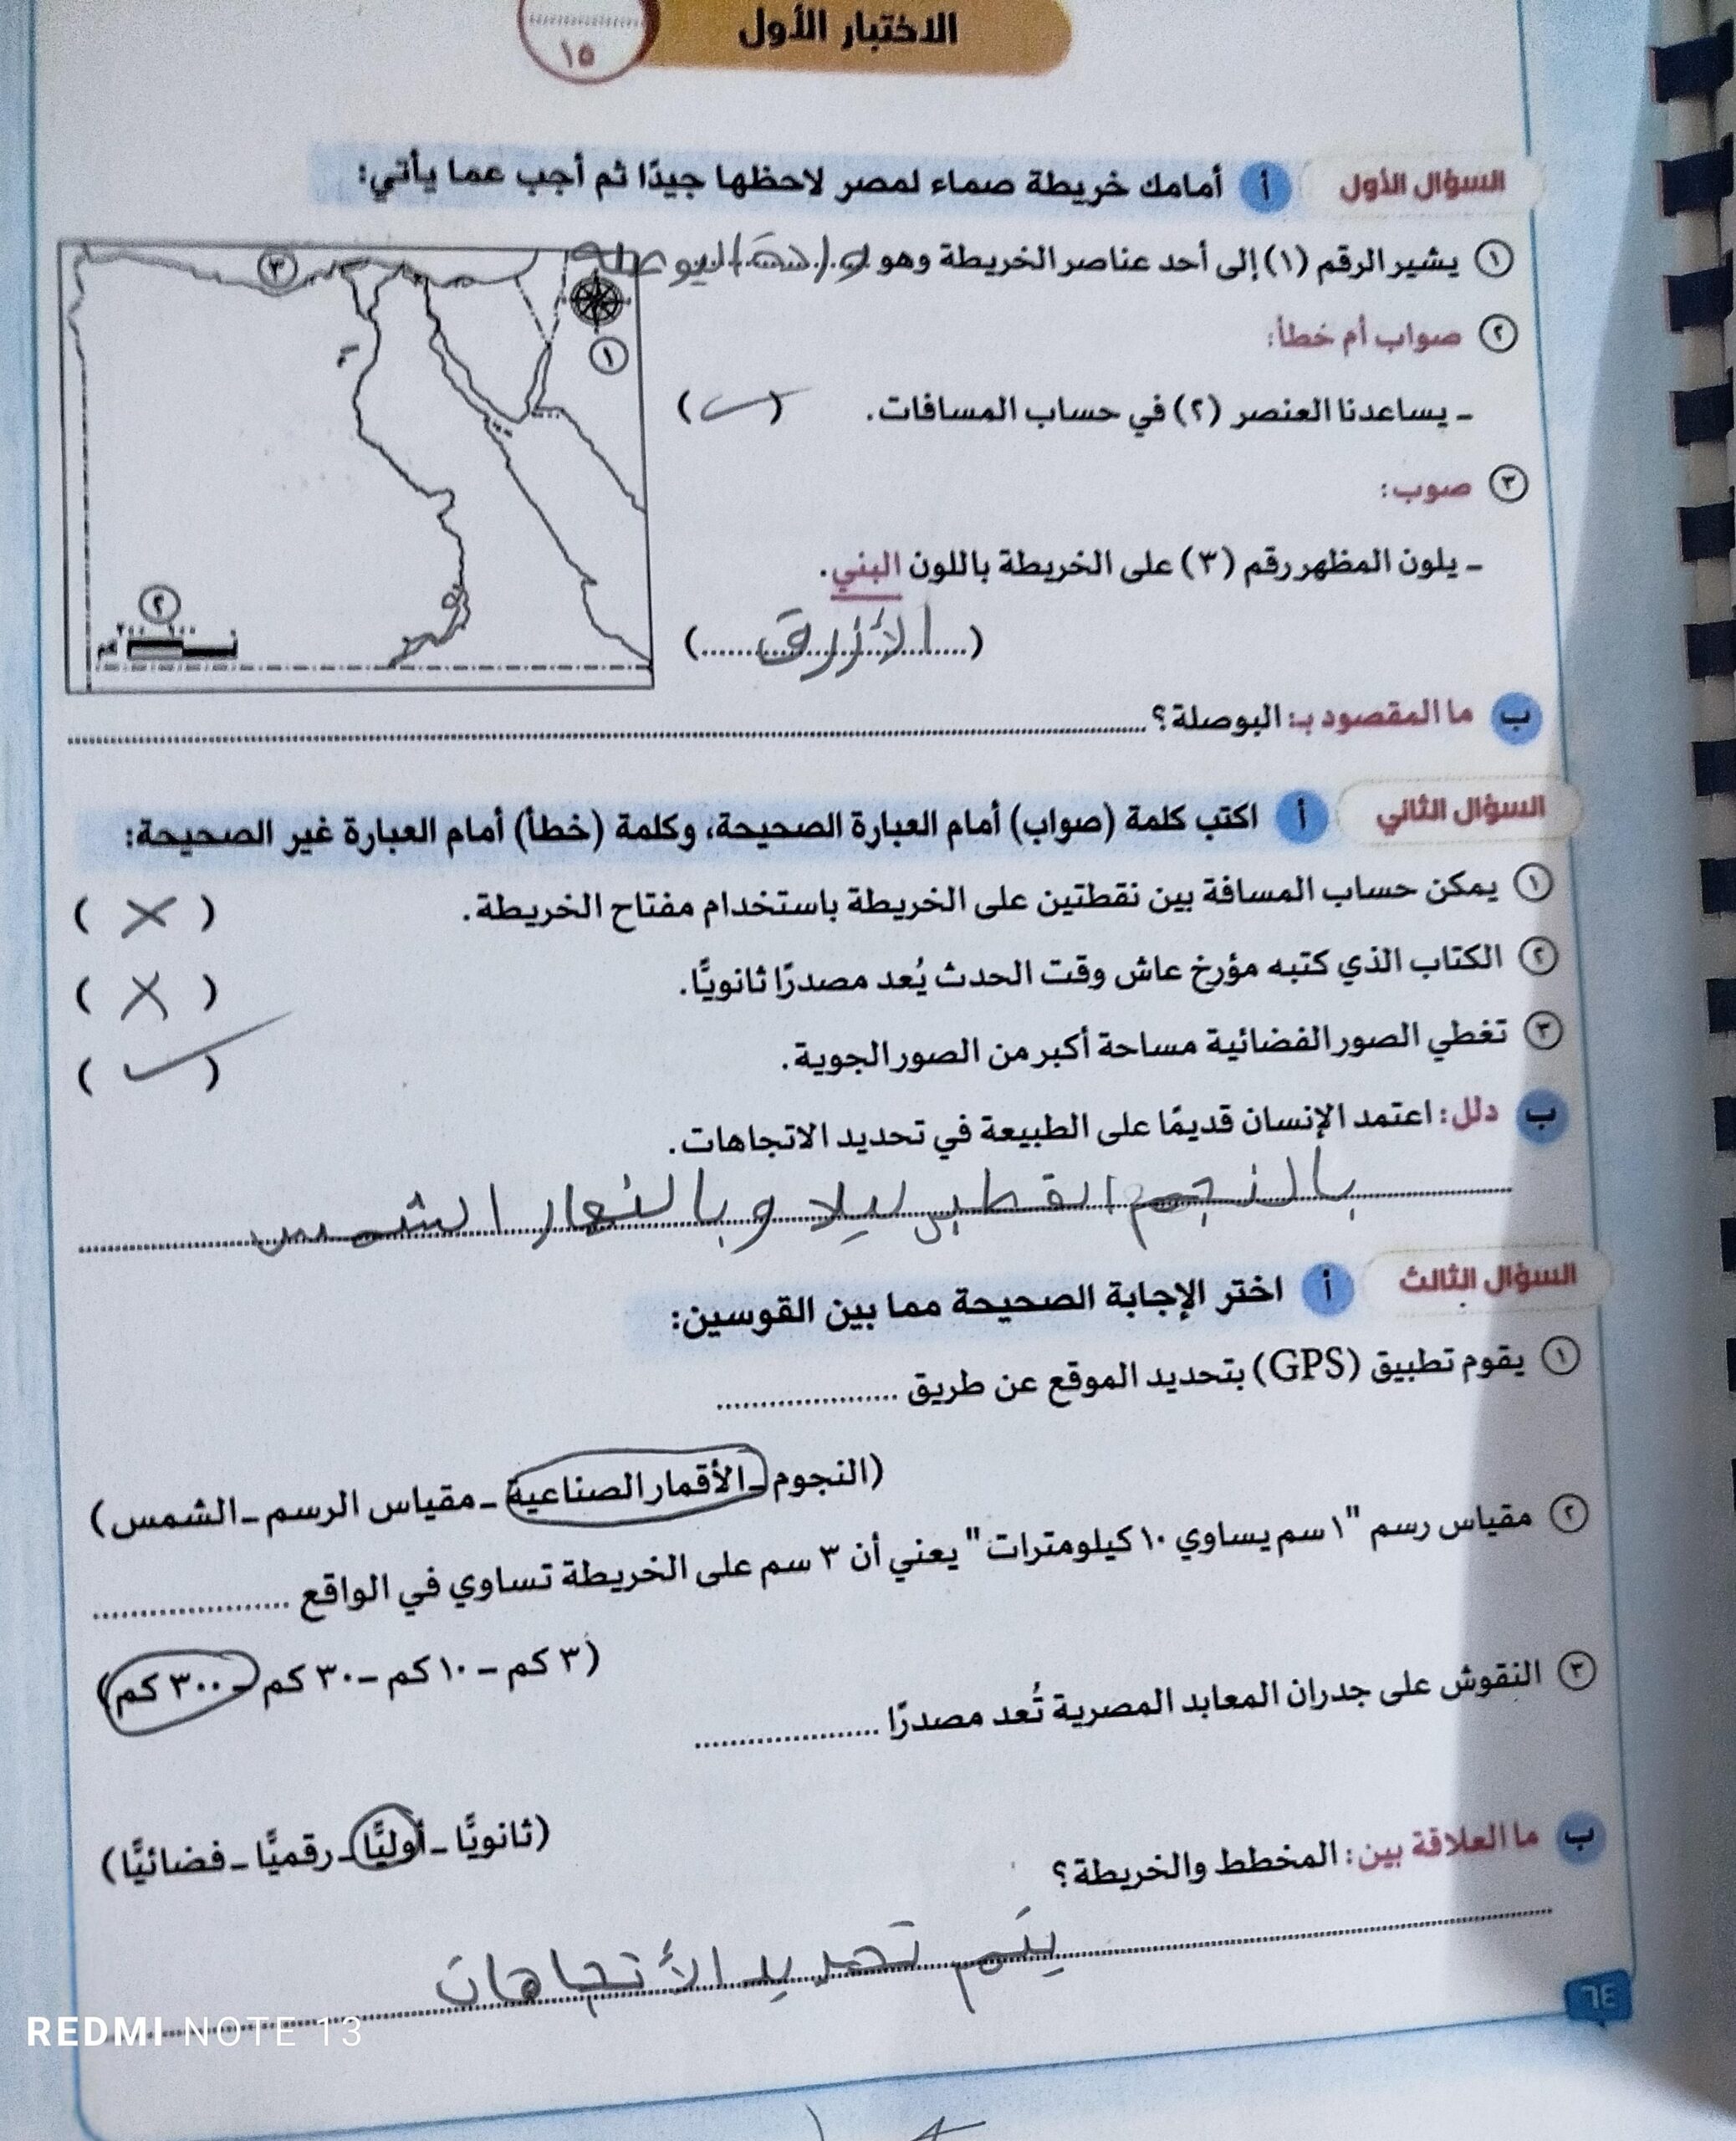 الاختبار الأول
١٥
السؤال الأول أ أمامك خريطة صماء لمصر لاحظها جيدًا ثم أجب عما يأتي:
١ يشير الرقم (١) إلى أحد عناصر الخريطة وهو البوصله
٢ صواب أم خطأ:
- يساعدنا العنصر (٢) في حساب المسافات. (✓)
٣ صوب:
- يلون المظهر رقم (٣) على الخريطة باللون البني.
(الأزرق)
٣
١
٢
٢٠٠ ١٠٠
كم
ب ما المقصود بـ: البوصلة؟
السؤال الثاني أ اكتب كلمة (صواب) أمام العبارة الصحيحة، وكلمة (خطأ) أمام العبارة غير الصحيحة:
١ يمكن حساب المسافة بين نقطتين على الخريطة باستخدام مفتاح الخريطة. (X)
٢ الكتاب الذي كتبه مؤرخ عاش وقت الحدث يُعد مصدرًا ثانويًّا. (X)
٣ تغطي الصور الفضائية مساحة أكبر من الصور الجوية. (✓)
ب دلل: اعتمد الإنسان قديمًا على الطبيعة في تحديد الاتجاهات.
بالنجم القطبي ليلا وبالنهار الشمس
السؤال الثالث أ اختر الإجابة الصحيحة مما بين القوسين:
١ يقوم تطبيق (GPS) بتحديد الموقع عن طريق ....................
(النجوم - الأقمار الصناعية - مقياس الرسم - الشمس)
٢ مقياس رسم "١ سم يساوي ١٠ كيلومترات" يعني أن ٣ سم على الخريطة تساوي في الواقع ....................
(٣ كم - ١٠ كم - ٣٠ كم - ٣٠٠ كم)
٣ النقوش على جدران المعابد المصرية تُعد مصدرًا ....................
(ثانويًّا - أوليًّا - رقميًّا - فضائيًّا)
ب ما العلاقة بين: المخطط والخريطة؟
يتم تحديد الأتجاهات
٦٤
REDMI NOTE 13